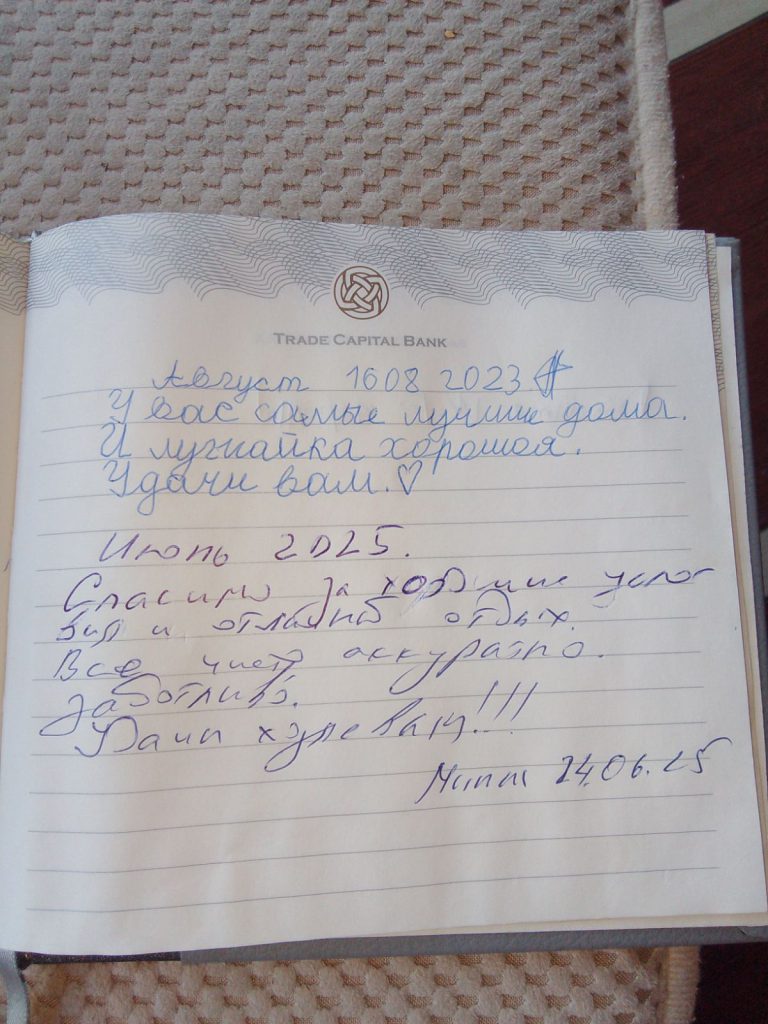 TRADE CAPITAL BANK
Август 16 08 2023
У вас самые лучшие дома.
И лужайка хорошая.
Удачи вам. ♡
Июнь 2025.
Спасибо за хорошие усло
вия и отличный отдых.
Все чисто аккуратно.
Заботливо.
вам!!!
24.06.25